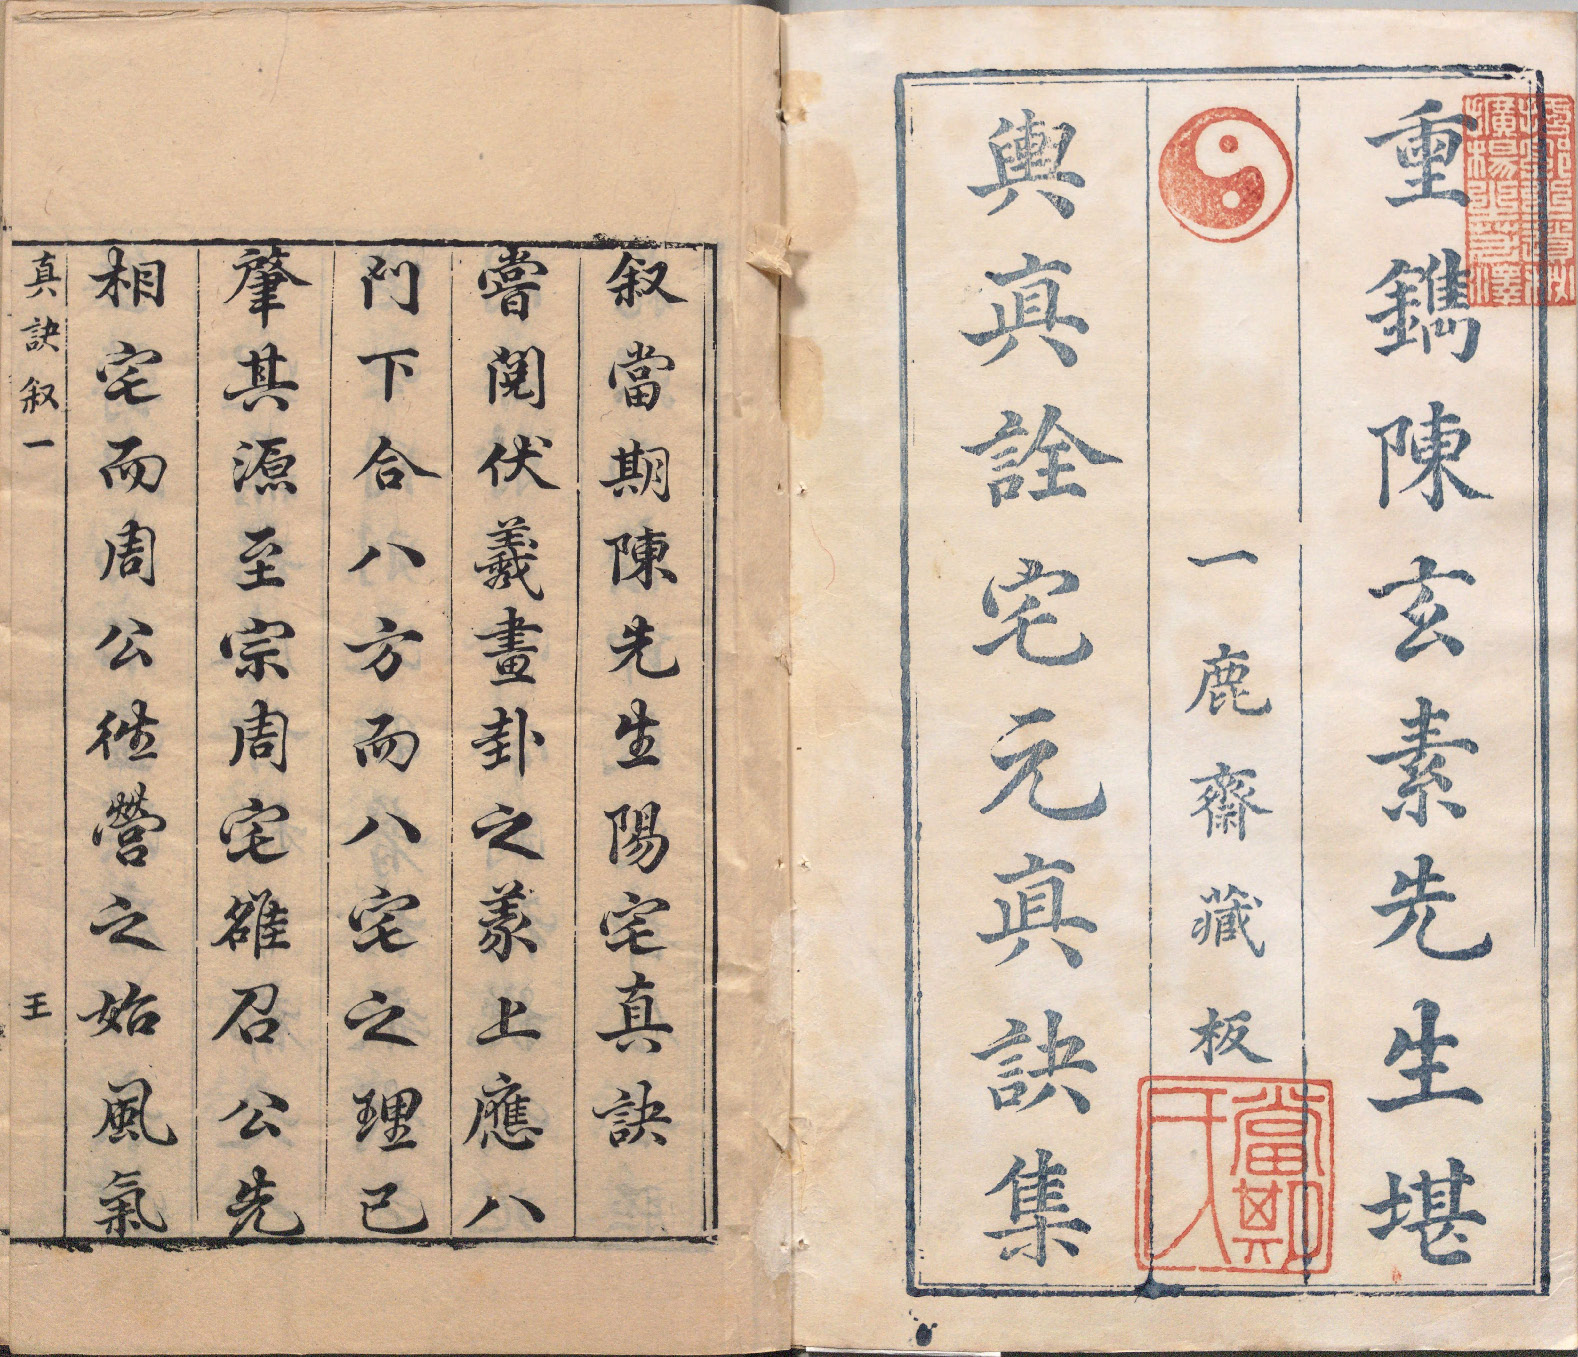 重鐫陳玄素先生堪
一鹿齋藏板
輿眞詮宅元眞訣集
當期
叙當期陳先生陽宅真訣
嘗閱伏羲畫卦之義上應八
門下合八方而八宅之理已
肇其源至宗周宅雒召公先
相宅而周公徃營之始風氣
真訣叙一
王